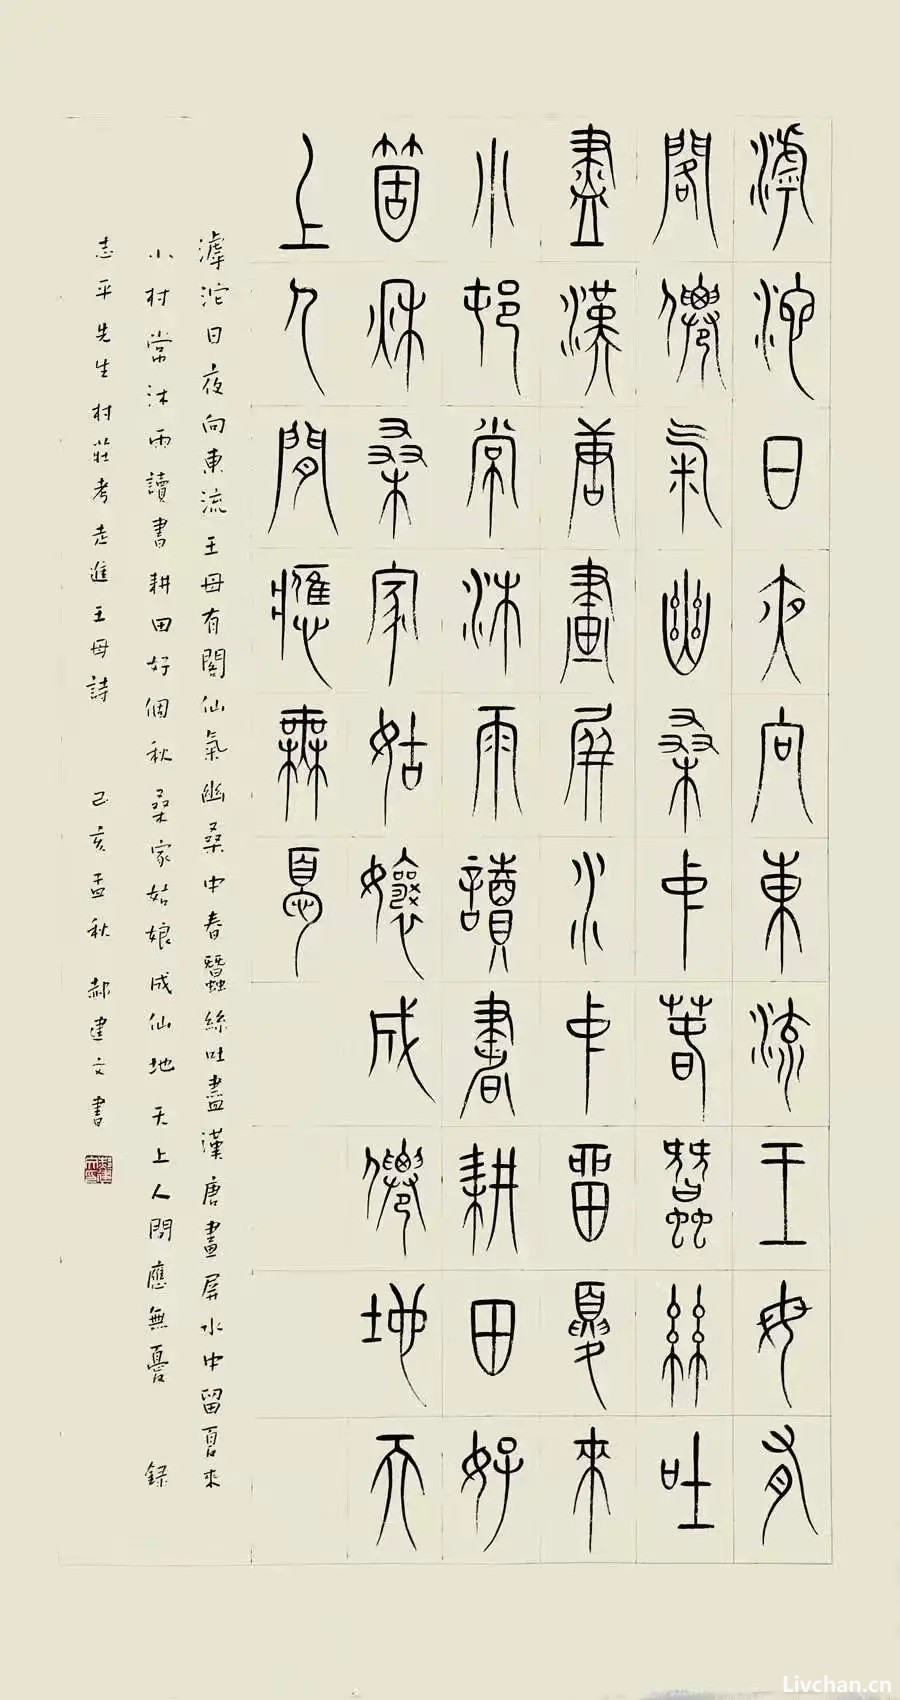 滹沱日夜向東流王母有
閣僊氣幽桑中春蠶絲吐
盡漢唐畫屏水中留夏來
小邨常沐雨讀書耕田好
箇秌桑家姑孃成僊地天
上人閒應無憂
滹沱日夜向東流王母有閣仙氣幽桑中春蠶絲吐盡漢唐畫屏水中留夏來
小村常沐雨讀書耕田好個秋桑家姑娘成仙地天上人間應無憂 錄
志平先生村莊考走進王母詩 己亥孟秋 郝建文書
Livchan.cn